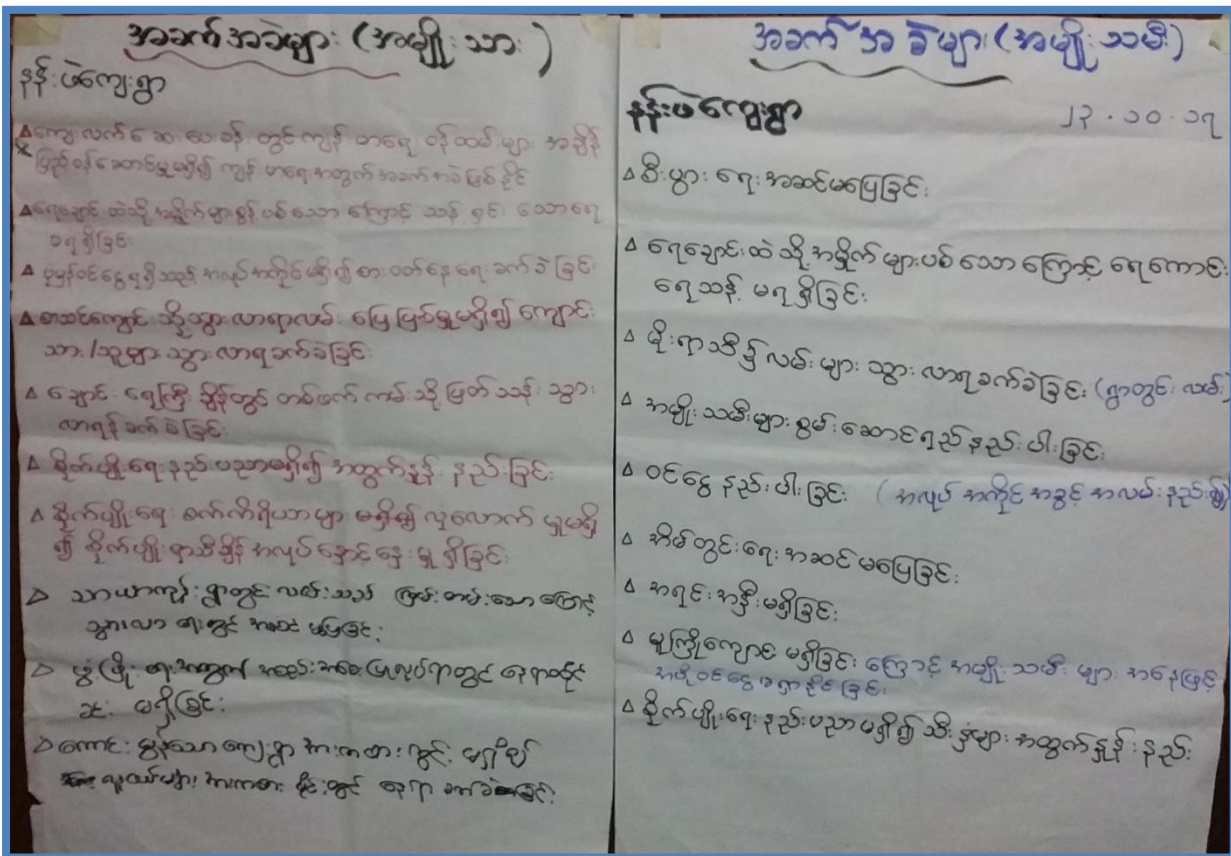 အခက်အခဲများ (အမျိုးသား)
နန်းပဲကျေးရွာ
Δ ကျေးလက်ဆေးပေးခန်းတွင် ကျန်းမာရေးဝန်ထမ်းများ အချိန်
ပြည့်ဝန်ဆောင်မှုမရှိ၍ ကျန်းမာရေးအတွက်အခက်အခဲဖြစ်နိုင်
Δ ရေချောင်းထဲသို့ အမှိုက်များစွန့်ပစ်သောကြောင့် သန့်ရှင်းသောရေ
မရရှိခြင်း
Δ ပုံမှန်ဝင်ငွေရရှိသည့် အလုပ်အကိုင်မရှိ၍ စားဝတ်နေရေးခက်ခဲခြင်း
Δ စာသင်ကျောင်းသို့သွားလာရာလမ်း ပြေပြစ်မှုမရှိ၍ ကျောင်း
သား/သူများသွားလာရခက်ခဲခြင်း
Δ ချောင်းရေကြီးချိန်တွင် တစ်ဖက်ကမ်းသို့ဖြတ်သန်းသွား
လာရန်ခက်ခဲခြင်း
Δ စိုက်ပျိုးရေးနည်းပညာမရှိ၍ အထွက်နှုန်းနည်းခြင်း
Δ စိုက်ပျိုးရေးစက်ကိရိယာများ မရှိ၍ လူလောက်မှုမရှိ
၍ စိုက်ပျိုးရာသီချိန် အလုပ်နှောင့်နှေးမှုရှိခြင်း
Δ သာယာကုန်းရွာတွင်လမ်းသည် ကြမ်းတမ်းသောကြောင့်
သွားလာရေးတွင် အဆင်မပြေခြင်း
Δ ဖွံ့ဖြိုးရေးအတွက် အစည်းအဝေးပြုလုပ်ရာတွင် နေရာထိုင်
ခင်းမရှိခြင်း
Δ ကောင်းမွန်သောကျေးရွာအားကစားကွင်းမရှိ၍
လူငယ်များအားကစားပိုင်းတွင် နေရာခက်ခဲခြင်း
အခက်အခဲများ (အမျိုးသမီး)
နန်းပဲကျေးရွာ
၂၃.၁၀.၁၇
Δ စီးပွားရေးအဆင်မပြေခြင်း
Δ ရေချောင်းထဲသို့အမှိုက်များပစ်သောကြောင့် ရေကောင်း
ရေသန့် မရရှိခြင်း
Δ မိုးရာသီ၌လမ်းများ သွားလာရခက်ခဲခြင်း (ရွာတွင်းလမ်း)
Δ အမျိုးသမီးများစွမ်းဆောင်ရည်နည်းပါးခြင်း
Δ ဝင်ငွေနည်းပါးခြင်း (အလုပ်အကိုင်အခွင့်အလမ်းနည်း၍)
Δ အိမ်တွင်းရေးအဆင်မပြေခြင်း
Δ အရင်းအနှီးမရှိခြင်း
Δ မူကြိုကျောင်းမရှိခြင်းကြောင့် အမျိုးသမီးများအနေဖြင့်
အပိုဝင်ငွေမရှာနိုင်ခြင်း
Δ စိုက်ပျိုးရေးနည်းပညာမရှိ၍ သီးနှံများအထွက်နှုန်းနည်း